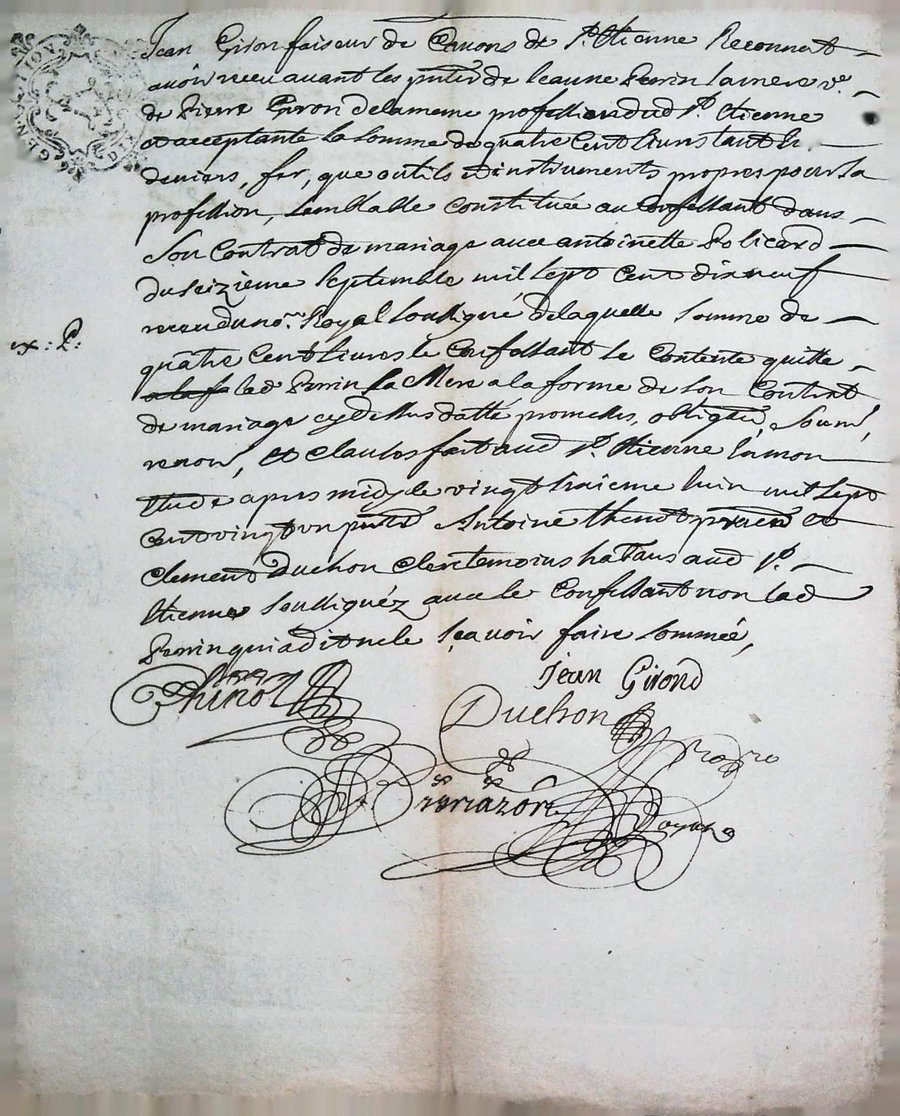 Jean Giron faiseur de Canons de St. Etienne Reconnait
avoir receu avant les pntes de Jeanne Perrin sa mere ve.
de Pierre Giron de la meme profession dud St. Etienne
et acceptante la somme de quatre Cent livres tant En
deniers, fer, que outils et instruments propres pour sa
profession, semblable Constituée au Confessant dans
Son Contrat de mariage avec antoinette Policard
du seizieme septembre mil sept cent dix neuf
receu du nore. Royal soussigné de laquelle somme de
ex: P:
quatre Cent livres le Confessant se Contente quitte
a la sa lad Perrin Sa Mere a la forme de son Contrat
de mariage cy dessus datté promesses, obligaõn, soum,
renon, et clauses fait aud St. Etienne En mon
Etude apres midy le vingt troisieme Juin mil sept
Cent vingt un pnts Antoine Thenot et
Clement Duchon Clerc temoins hattans aud St.
Etienne soussignéz avec le Confessant non lad
Perrin qui a dit ne le sçavoir faire sommée,
Jean Girond
Duchon